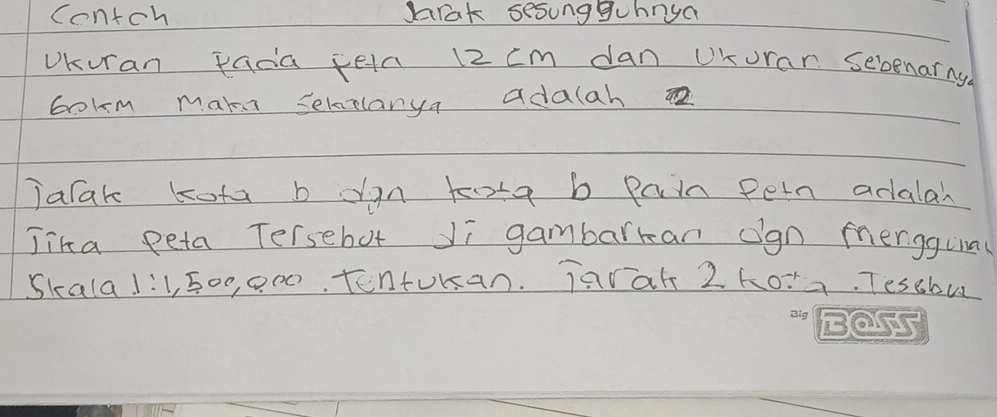 Contoh Jarak sesungguhnya
Ukuran pada peta 12 cm dan Ukuran Sebenarnya
60km Maka Sekalanya adalah
Jarak kota b dgn kota b Pada Peta adalah
Jika Peta Tersebut di gambarkan dgn menggunak
Skala 1:1,500,000. Tentukan. Jarak 2 kota. Tesebut
Big BOSS